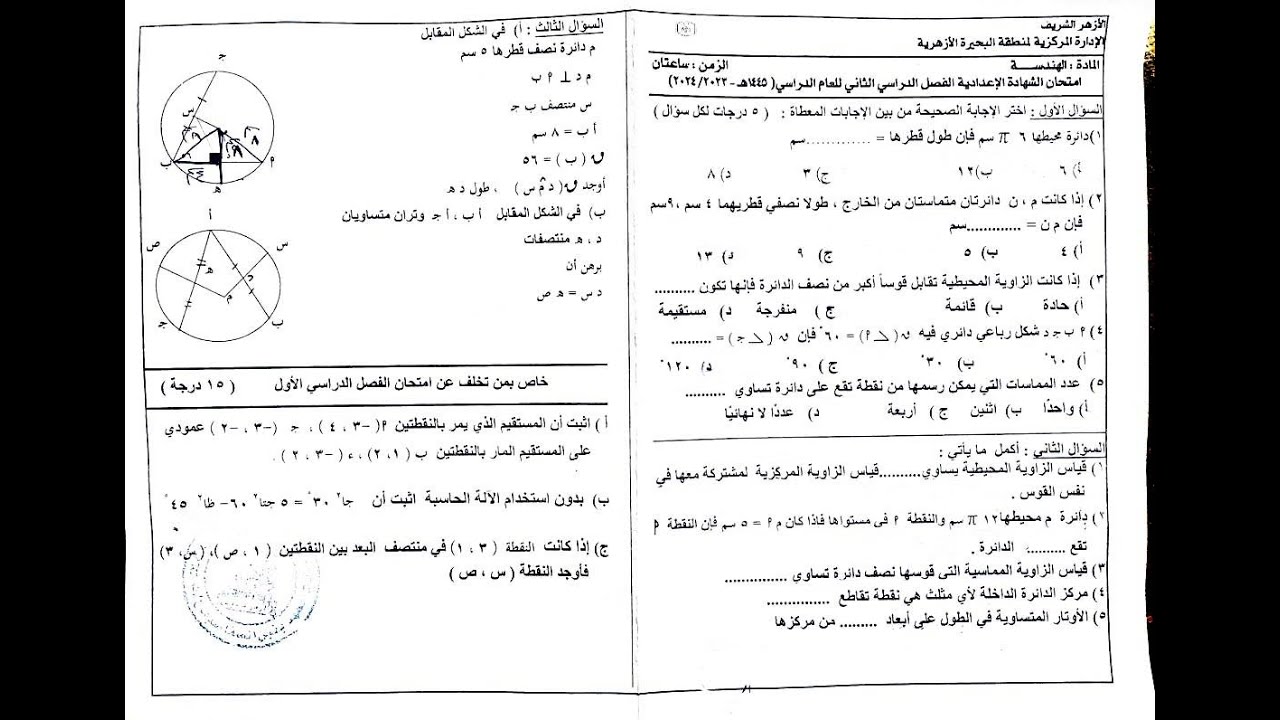 الأزهر الشريف
الإدارة المركزية لمنطقة البحيرة الأزهرية
المادة : الهندسة
الزمن : ساعتان
امتحان الشهادة الإعدادية الفصل الدراسي الثاني للعام الدراسي( ١٤٤٥هـ - ٢٠٢٣/ ٢٠٢٤)
السؤال الأول : اختر الإجابة الصحيحة من بين الإجابات المعطاة : ( ٥ درجات لكل سؤال )
١)دائرة محيطها ٦ π سم فإن طول قطرها = .............سم
أ) ٦ ب)١٢ ج) ٣ د) ٨
٢) إذا كانت م ، ن دائرتان متماستان من الخارج ، طولا نصفي قطريهما ٤ سم ،٩سم
فإن م ن = .............سم
أ) ٤ ب) ٥ ج) ٩ د) ١٣
٣) إذا كانت الزاوية المحيطية تقابل قوساً أكبر من نصف الدائرة فإنها تكون ..........
أ) حادة ب) قائمة ج ) منفرجة د) مستقيمة
٤) ٩ ب ج د شكل رباعي دائري فيه ن (ح ٩) = ٦٠° فإن ن (ح ج ) = ..........
أ) ٦٠° ب) ٣٠° ج ) ٩٠° د) ١٢٠°
٥) عدد المماسات التي يمكن رسمها من نقطة تقع على دائرة تساوي ..........
أ) واحدًا ب) اثنين ج ) أربعة د) عددًا لا نهائيًا
السؤال الثاني : أكمل ما يأتي :
١) قياس الزاوية المحيطية يساوي..........قياس الزاوية المركزية لمشتركة معها في
نفس القوس .
٢) دائرة م محيطها١٢ π سم والنقطة ٩ فى مستواها فاذا كان م ٩ = ٥ سم فإن النقطة ٩
تقع .......... الدائرة .
٣) قياس الزاوية المماسية التى قوسها نصف دائرة تساوي ...............
٤) مركز الدائرة الداخلة لأي مثلث هي نقطة تقاطع ...............
٥) الأوتار المتساوية في الطول على أبعاد ......... من مركزها
السؤال الثالث : أ) في الشكل المقابل
م دائرة نصف قطرها ٥ سم
م د ⊥ ٩ ب
س منتصف ب ج
أ ب = ٨ سم
ن (ب ) = ٥٦
أوجد ن( د م س ) ، طول د ه
ب) في الشكل المقابل أ ب ، أ ج وتران متساويان
د ، ه منتصفات
برهن أن
د س = ه ص
ج
س
م
ب
٩
ه
أ
ص
س
ه
د
م
ج
ب
خاص بمن تخلف عن امتحان الفصل الدراسي الأول ( ١٥ درجة )
أ ) اثبت أن المستقيم الذي يمر بالنقطتين ٩( -٣ ، ٤ ) ، ج ( -٣ ، -٢ ) عمودي
على المستقيم المار بالنقطتين ب ( ١، ٢) ، ء ( -٣ ، ٢ ) .
ب) بدون استخدام الآلة الحاسبة اثبت أن جا٢ ٣٠° = ٥ جتا٢ ٦٠- ظا٢ ٤٥°
ج) إذا كانت النقطة ( ٣ ، ١ ) في منتصف البعد بين النقطتين ( ١ ، ص )، (س ، ٣)
فأوجد النقطة ( س ، ص )